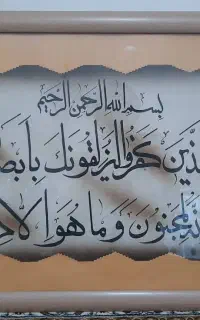 بسم الله الرحمن الرحيم
لذين كفروا ليزلقونك بابصا
نه لمجنون و ما هو الا